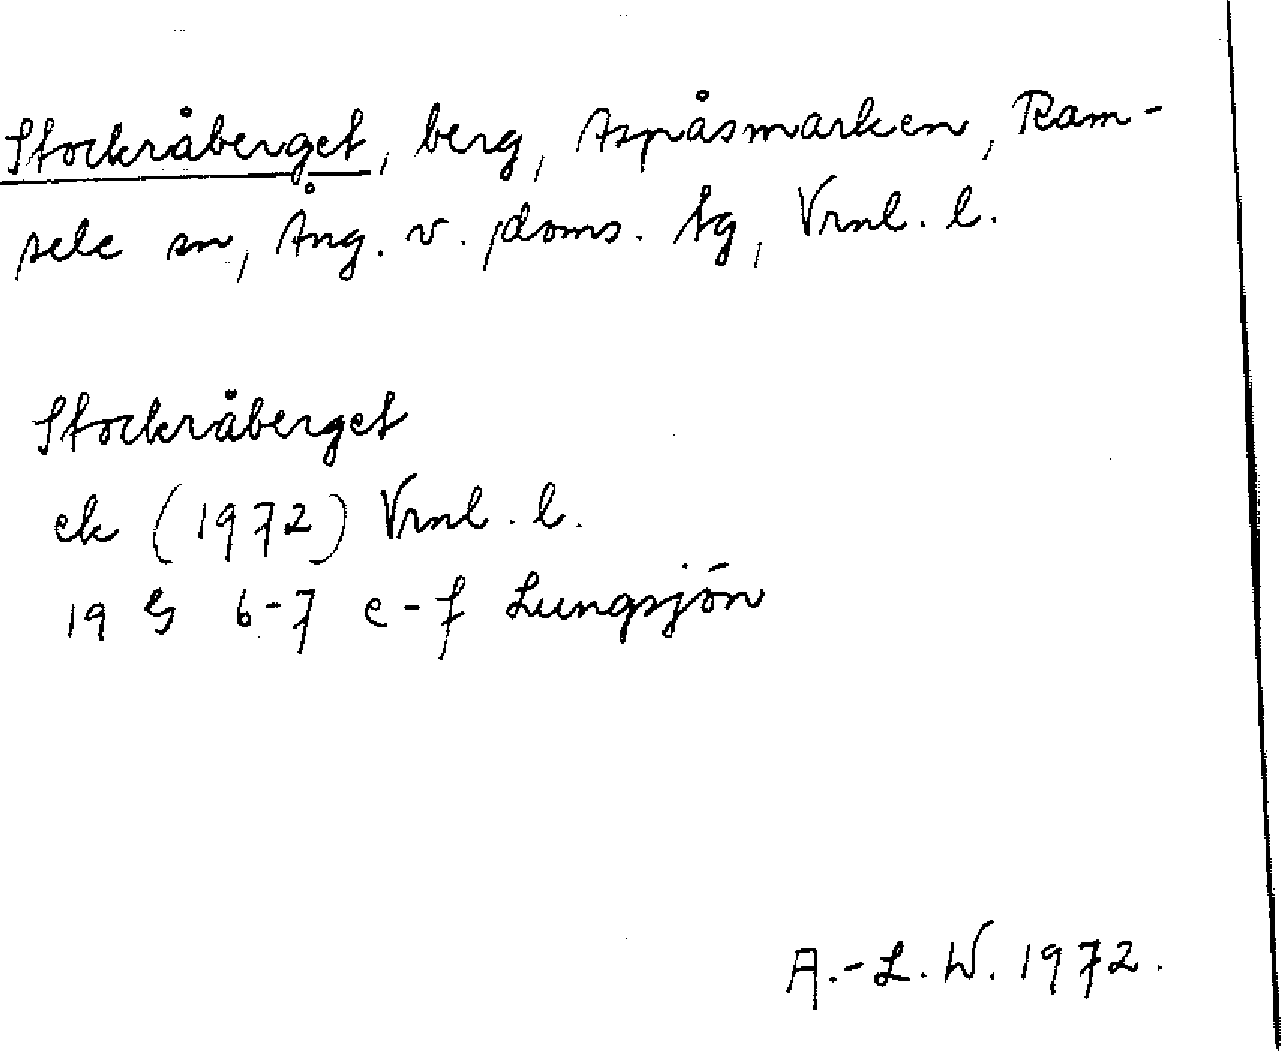 Stockråberget, berg, Aspåsmarken, Ram-
sele sn, Ång. v. doms. tg, Vrml. l.
Stockråberget
ek (1972) Vrml. l.
19 G 6-7 e-f Lungsjön
A.-L. W. 1972.